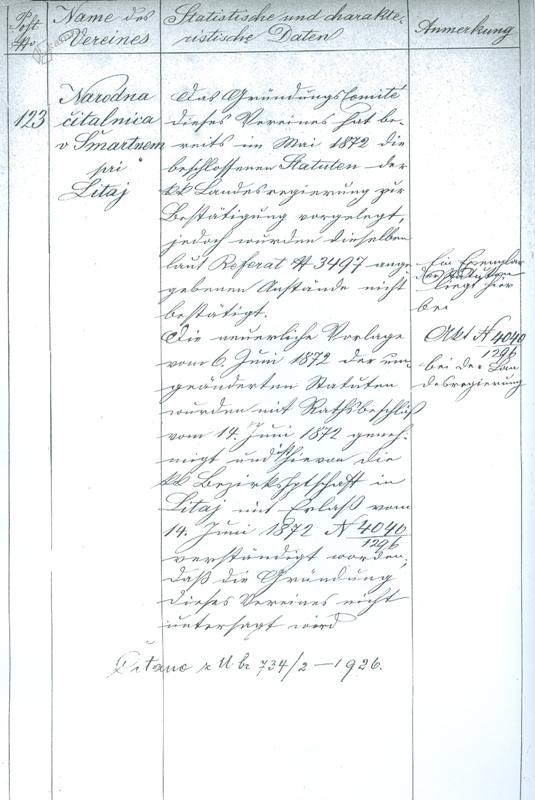 Post
No
Name des
Vereines
Statistische und charakte-
ristische Daten
Anmerkung
123
Narodna
čitalnica
v Šmartnem
pri
Litaj
Das Gründungs Comité
dieses Vereines hat be-
reits im Mai 1872 die
beschlossenen Statuten der
kk Landesregierung zur
Bestätigung vorgelegt,
jedoch wurden dieselben
laut Referat № 3497 ange
gebenen Anstände nicht
bestätigt.
Die neuerliche Vorlage
vom 6. Juni 1872 der um-
geänderten Statuten
wurden mit Rathsbeschluß
vom 14. Juni 1872 geneh-
migt und hievon die
kk Bezirkshptschaft in
Litaj mit Erlaß vom
14. Juni 1872 N 4040
1296
verständigt worden,
daß die Gründung
dieses Vereines nicht
untersagt wird
Ein Exemplar
der Statuten
liegt hier
bei
Akt N 4040
1296
bei der Lan
desregierung
Čitano z U br 734/2 – 1926.